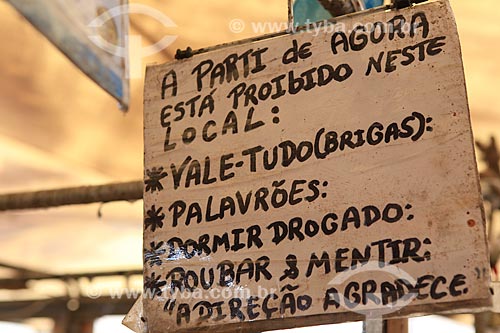 www.tyba.com.br
A PARTI de AGORA
ESTÁ PROIBIDO NESTE
LOCAL:
*VALE-TUDO(BRIGAS):
*PALAVRÕES:
*DORMIR DROGADO:
*ROUBAR & MENTIR:
"A DIREÇÃO AGRADECE."
www.tyba.com.br